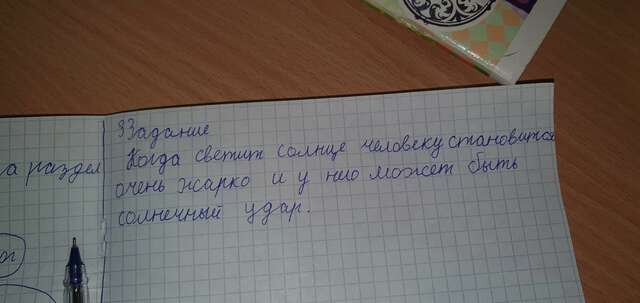 3Задание
Когда светит солнце человеку становится
а раздел
очень жарко и у нио может быть
солнечный удар.
ог